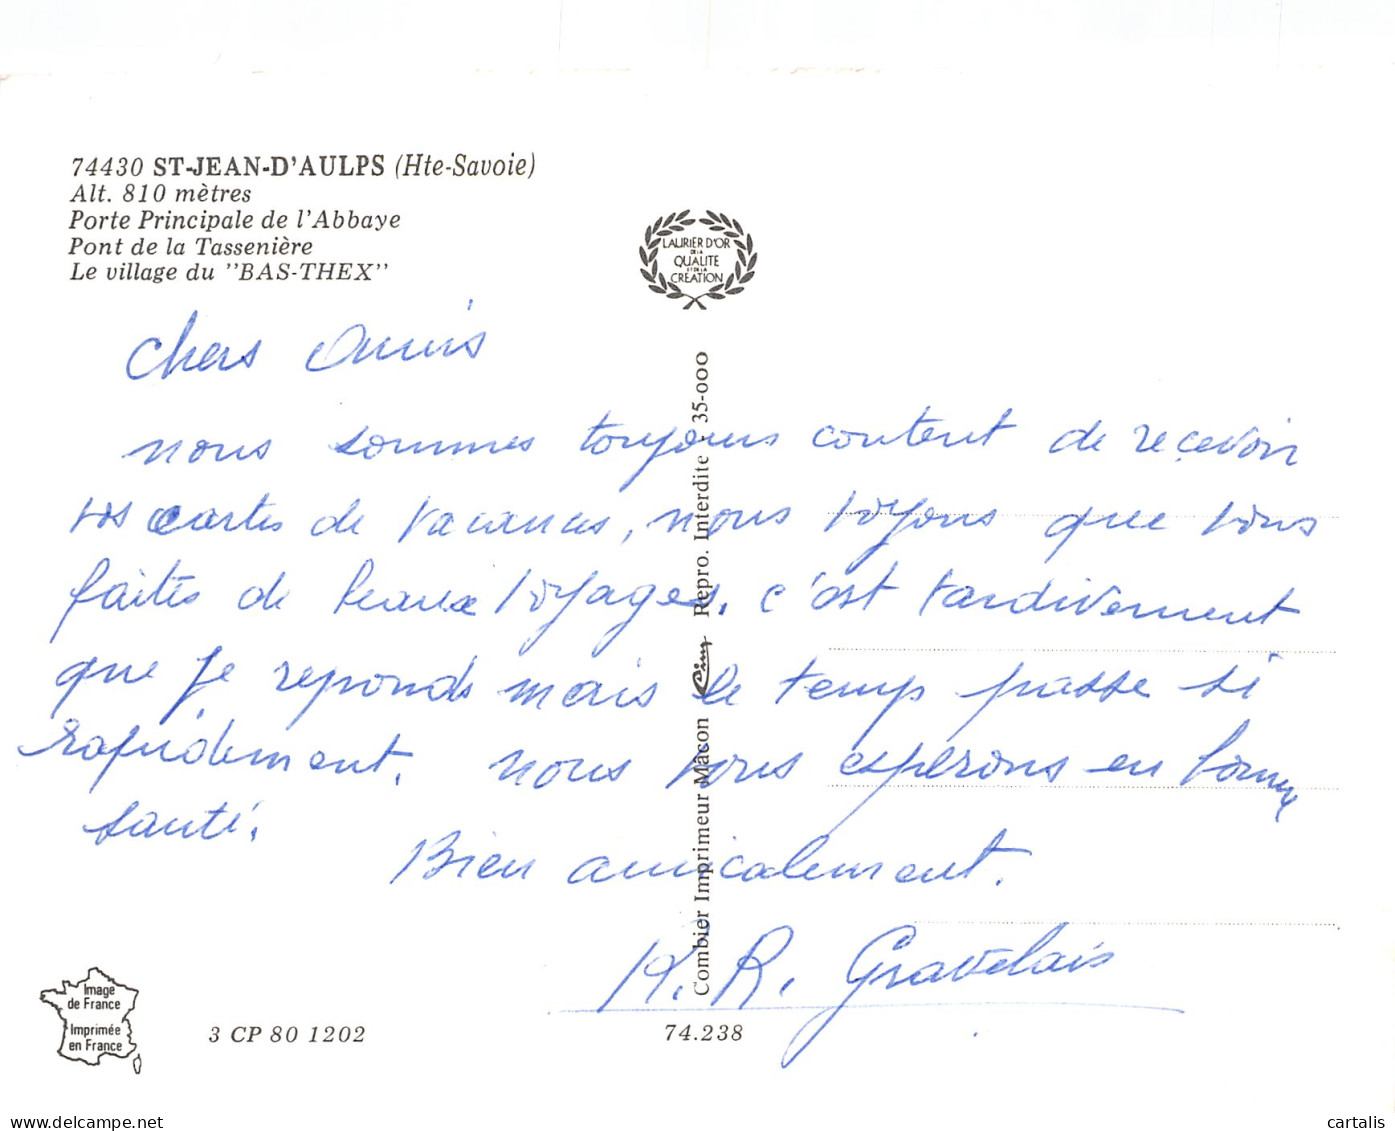 74430 ST-JEAN-D'AULPS (Hte-Savoie)
Alt. 810 mètres
Porte Principale de l'Abbaye
Pont de la Tassenière
Le village du "BAS-THEX"
LAURIER D'OR
DE LA
QUALITE
ET DE LA
CREATION
Chers Amis
nous sommes toujours content de recevoir
vos cartes de vacances, nous voyons que vous
faites de beaux voyages. c'est tardivement
que je reponds mais le temps passe si
rapidement. nous vous esperons en bonne
santé.
Bien amicalement.
R. Gravelais
Combier Imprimeur Mâcon Cim Repro. Interdite . 35-000
Image
de France
Imprimée
en France
3 CP 80 1202
74.238
delcampe.net
cartalis